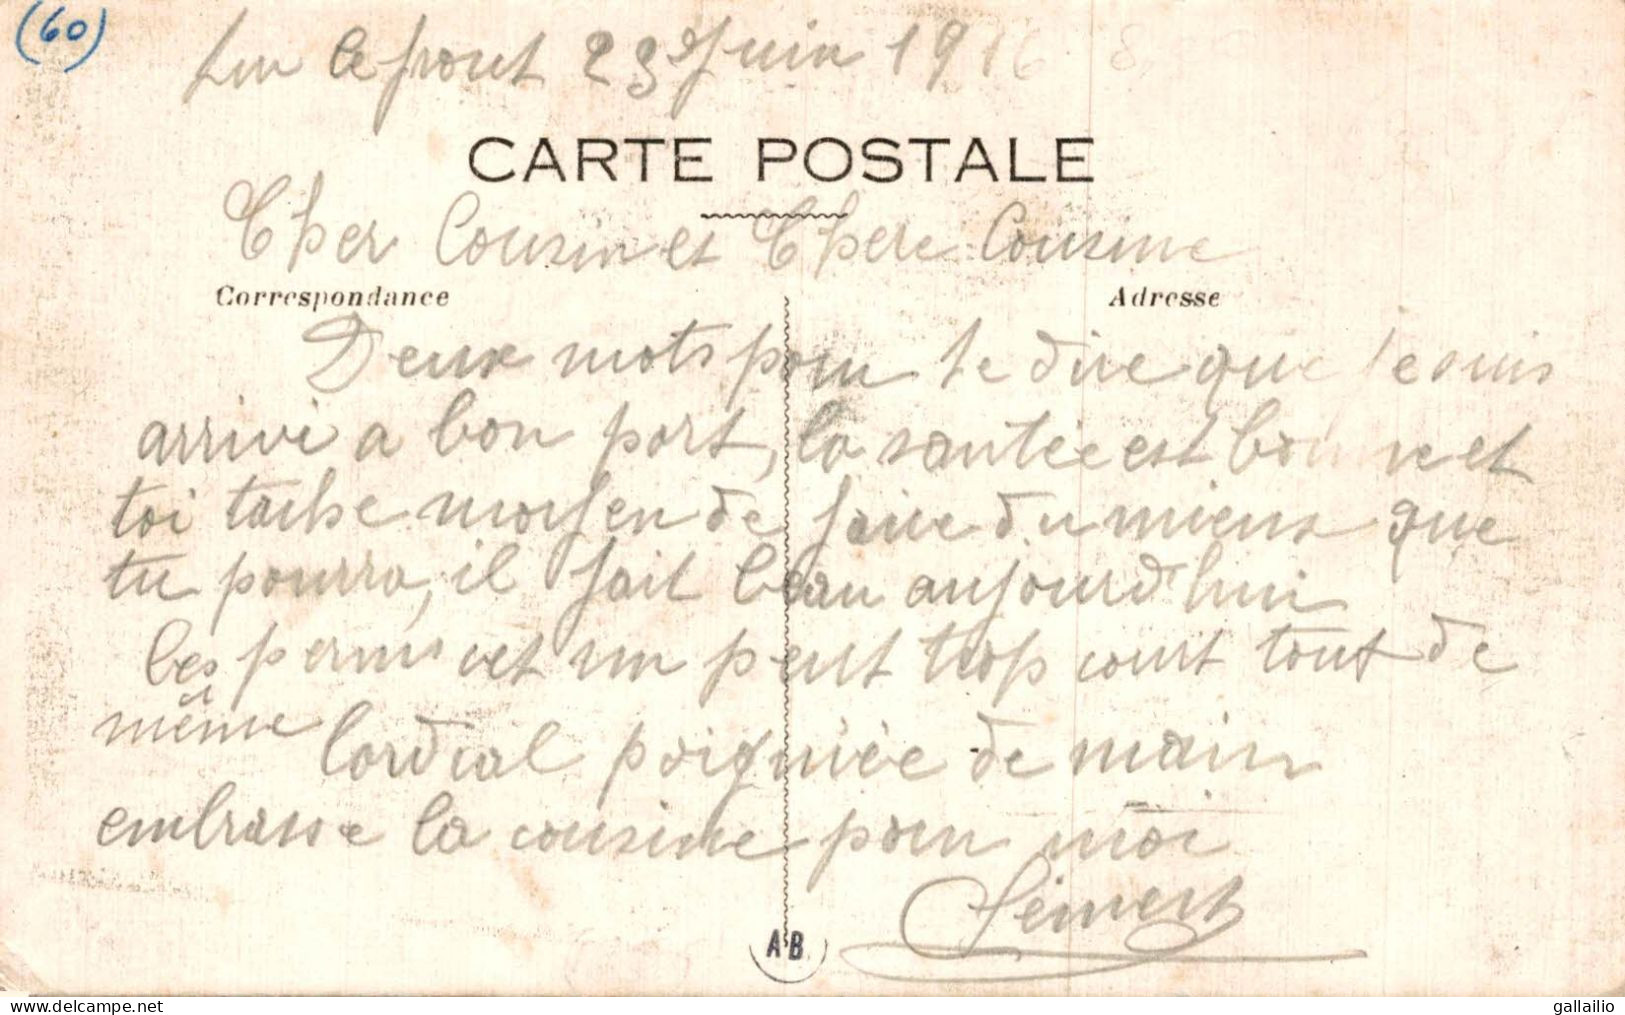 (60)
Sur le front 23 Juin 1916
CARTE POSTALE
Cher Cousin et Chere Cousine
Correspondance
Adresse
Deux mots pour te dire que je suis
arrivé a bon port, la santée est bonne et
toi tache moyen de faire du mieux que
tu pourra, il fait beau aujourd'hui
les permis cet un peut trop court tout de
même Cordial poignée de main
embrasse la cousine pour moi
AB
gallailio